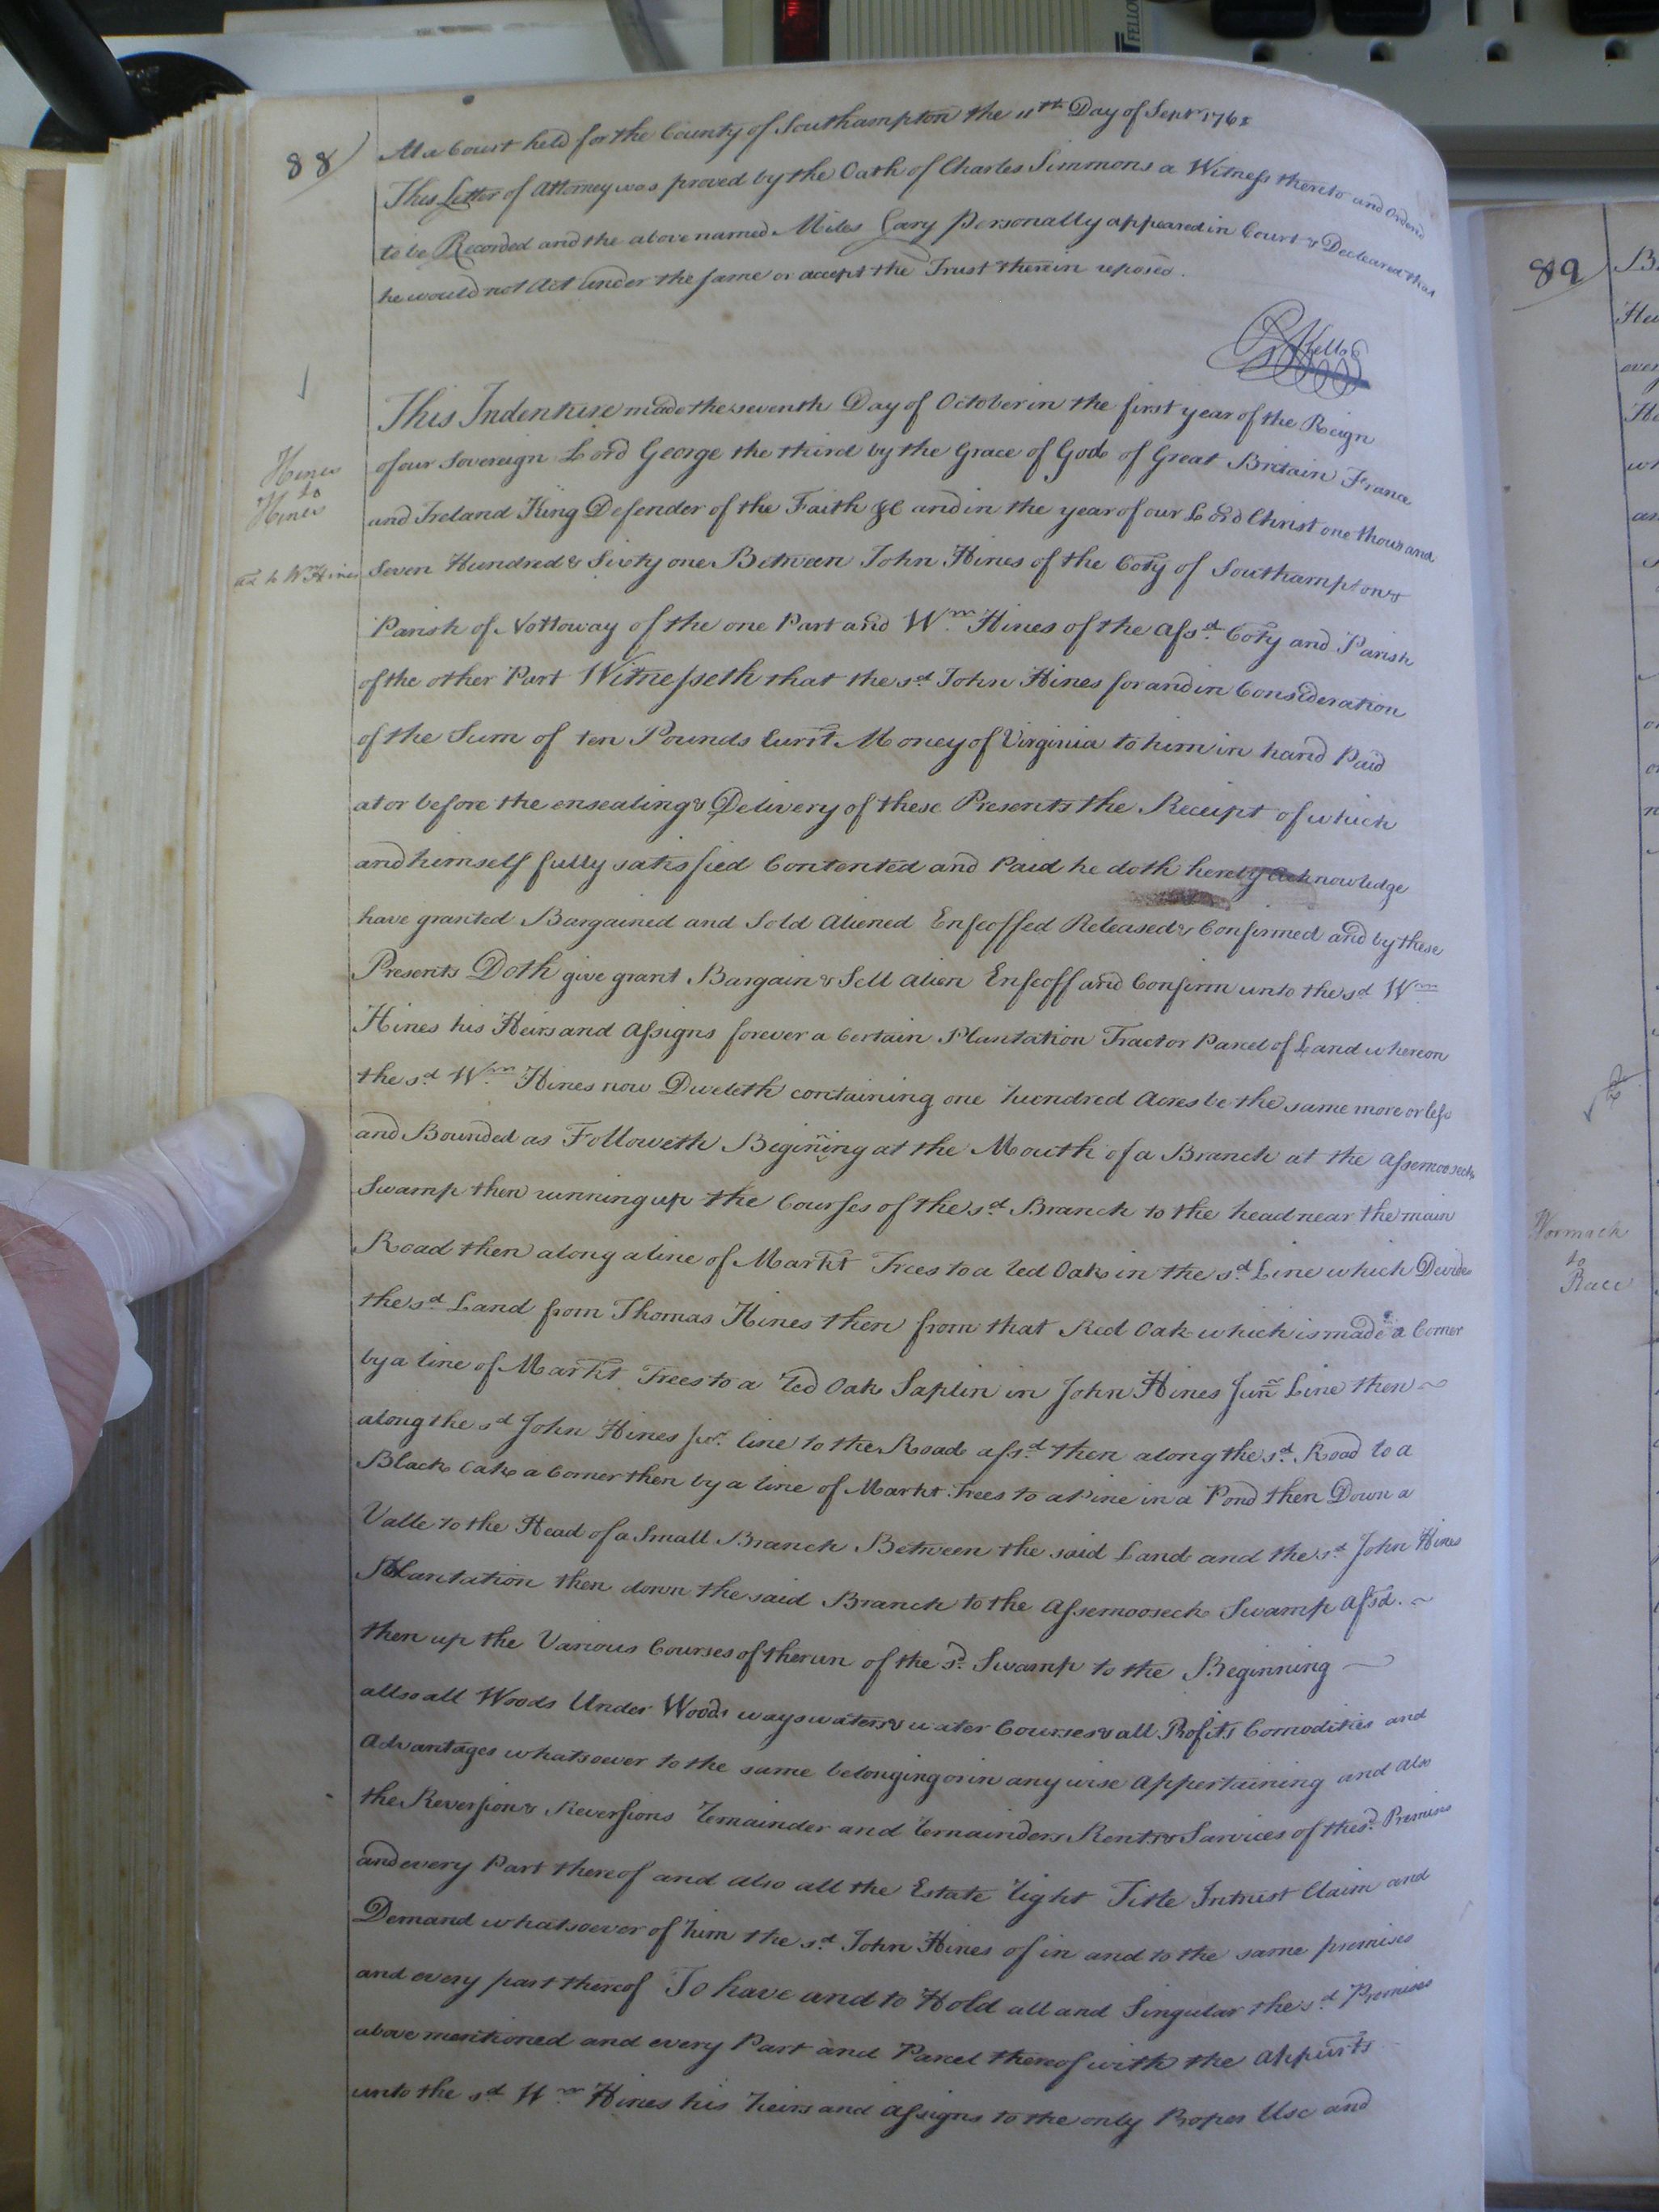 FELLO
88
At a Court held for the County of Southampton the 11th Day of Sept 176
This Letter of Attorney was proved by the Oath of Charles Simmons a Witness thereto and Ordered
to be Recorded and the above named Miles Cary Personally appeared in Court & Declared that
he would not Act under the same or accept the Trust therein reposed.
This Indenture made the seventh Day of October in the first year of the Reign
of our Sovereign Lord George the third by the Grace of God of Great Britain France
Hines
to
Hines
and Ireland King Defender of the Faith &c and in the year of our Lord Christ one thousand
Seven Hundred & Sixty one Between John Hines of the Coty of Southampton &
Parish of Nottoway of the one Part and Wm. Hines of the afsd. Coty and Parish
of the other Part Witnesseth that the sd. John Hines for and in Consideration
of the Sum of ten Pounds Currt. Money of Virginia to him in hand Paid
at or before the ensealing & Delivery of these Presents the Receipt of which
and himself fully satisfied Contented and Paid he doth hereby Acknowledge
have granted Bargained and Sold Aliened Enfeoffed Released & Confirmed and by these
Presents Doth give grant Bargain & Sell alien Enfeoff and Confirm unto the sd. Wm.
Hines his Heirs and Assigns forever a Certain Plantation Tract or Parcel of Land whereon
the sd. Wm. Hines now Dweleth containing one hundred Acres be the same more or less
and Bounded as Followeth Begining at the Mouth of a Branch at the Assemooseck
Swamp then running up the Courses of the sd. Branch to the head near the main
Road then along a line of Markt Trees to a red Oak in the sd. Line which Divides
the sd. Land from Thomas Hines then from that Red Oak which is made a Corner
by a line of Markt Trees to a red Oak Saplin in John Hines Junr. Line then
along the sd. John Hines Jur. line to the Road afsd. then along the sd. Road to a
Black Oak a Corner then by a line of Markt. Trees to a Pine in a Pond then Down a
Valle to the Head of a Small Branch Between the said Land and the sd. John Hines
Plantation then down the said Branch to the Assemooseck Swamp Afsd.
then up the Various Courses of the run of the sd. Swamp to the Beginning
allso all Woods Under Woods ways waters & water Courses & all Profits Comodities and
Advantages whatsoever to the same belonging or in any wise Appertaining and also
the Reversion & Reversions remainder and remainders Rents & Sarvices of the sd. Premises
and every Part thereof and also all the Estate right Title Intrust Claim and
Demand whatsoever of him the sd. John Hines of in and to the same premises
and every part thereof To have and to Hold all and Singular the sd. Premises
above mentioned and every Part and Parcel thereof with the Appurts
unto the sd. Wm. Hines his heirs and assigns to the only Proper Use and
89
Wormack
to